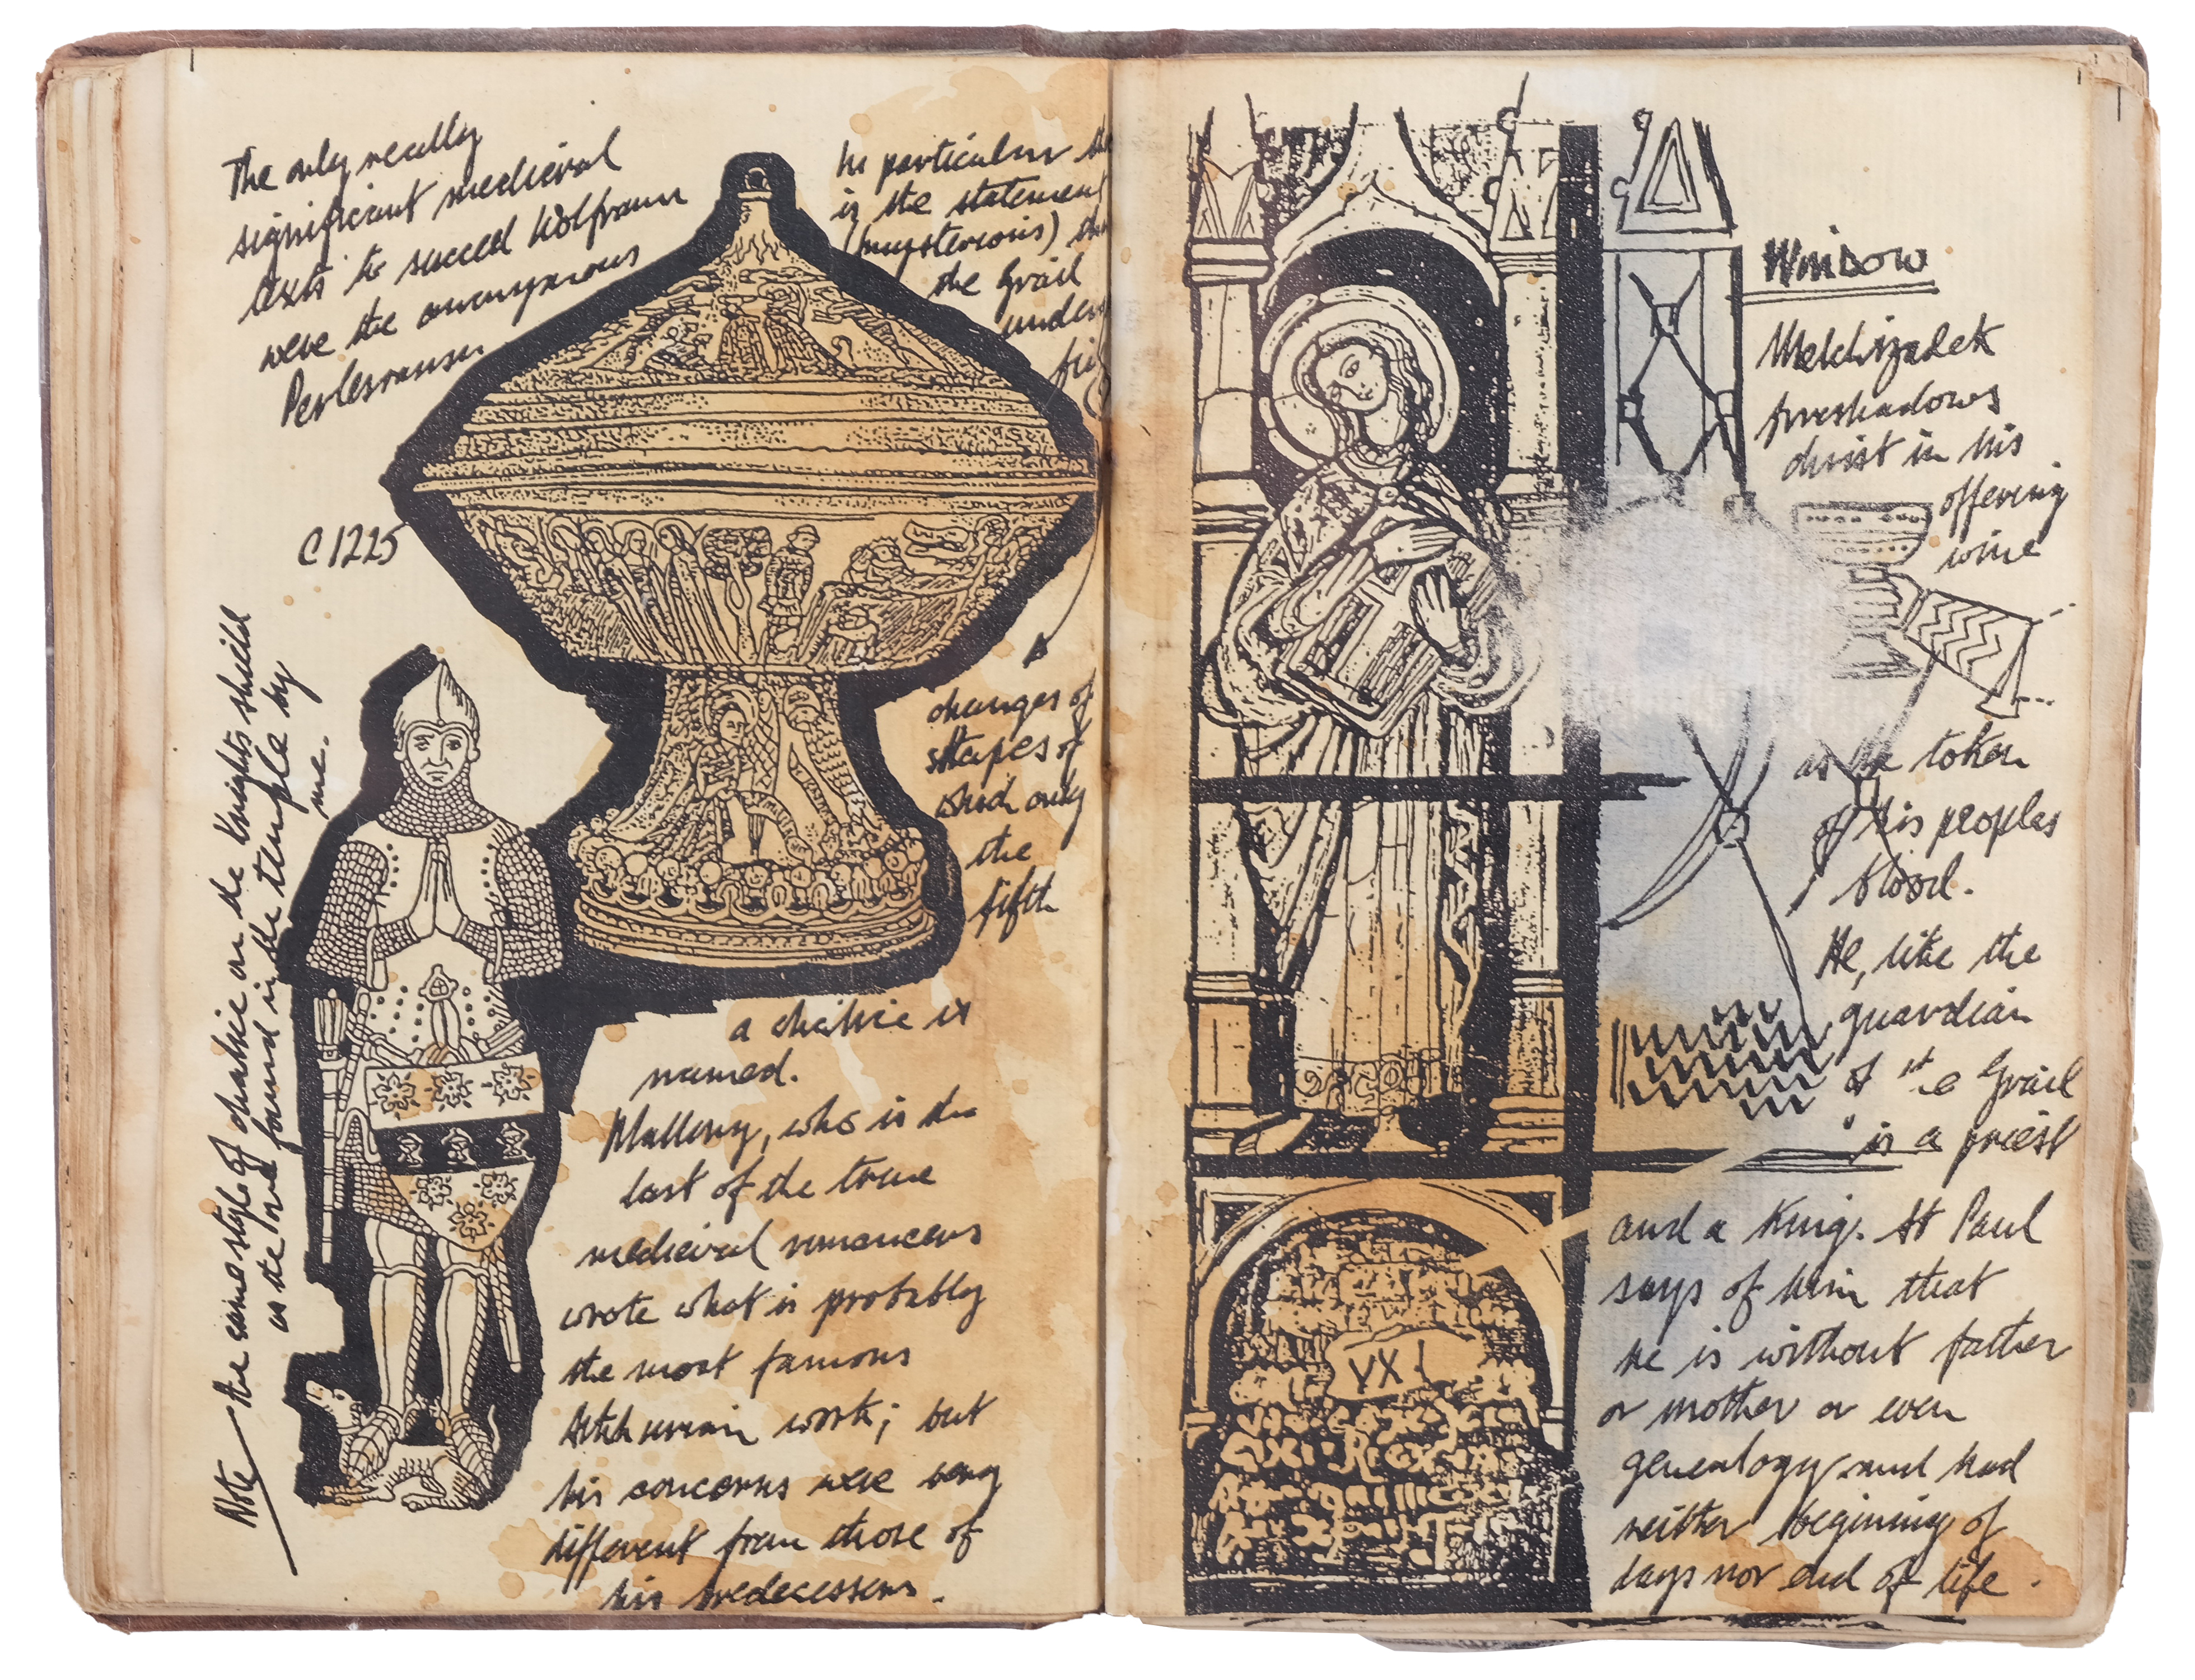 The only really
significant medieval
texts to succeed Wolfram
were the anonymous
Perlesvaus
C1225
In particular
is the statement
(mysterious)
the Grail
changes of
shapes of
which only
the
fifth
a chalice is
named.
Mallory, who is the
last of the true
medieval romancers
wrote what is probably
the most famous
Arthurian work; but
his concerns were very
different from those of
his predecessors.
Note the same style of chalice on the Knights shield
as the one found in the temple by
me.
WINDOW
Melchizadek
foreshadows
christ in his
offering
wine
as a token
of his peoples
blood.
He, like the
guardian
of the Grail
is a priest
and a King. St Paul
says of him that
he is without father
or mother or even
genealogy and had
neither beginning of
days nor end of life.
VX